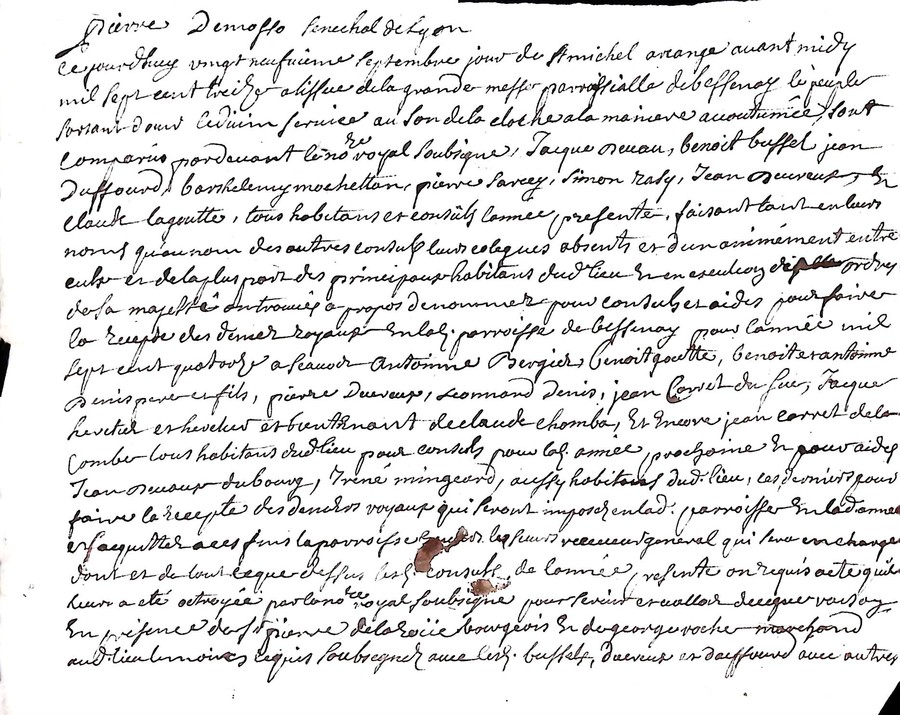 pierre Demosso senechal de Lyon
Ce jourdhuy vingt neufvieme septembre jour de st michel arcange avant midy
mil sept cent treize a lissue de la grande messe parroissialle de bessenay le peuple
sortant douir le divin service au son de la cloche a la maniere accoutumée, sont
comparus pardevant le nore royal soubsigne, Jacque Deveau, benoit bussel jean
Duffourd, barthelemy mochettan, pierre sarcey, simon rasy, Jean Devreux, En
claude lagoutte, tous habitans et consuls lannee presente, faisant tant en leurs
noms quau nom des autres consuls leurs colegues absents et dun animément entre
eulx et de la plus part des principaux habitans dud. lieu En execution des ordres
de sa majesté ont trouvés a propos de nommer pour consuls et aides pour faire
la recepte des deniers royaux En lad. parroisse de bessenay pour lannée mil
sept cent quatorze a scavoir Antoinne Bergier, benoit goutte, benoit et antoinne
Denis pere et fils, pierre Duvreux, Leonnard Denis, jean Corret du Sou, Jacque
heretier et bientenant de claude chomba, Et Encore jean carret de la
Combe tous habitans dud. lieu pour consuls pour lad. année prochaine En pour aides
Jean Devaux du bourg, Iréné mingeard, aussy habitans dud. lieu, les derniers pour
faire la recepte des deniers royaux qui seront imposés en lad. parroisse En lad annee
et sacquitter a ces fins la parroisse les sieurs receveurs general qui sera en charge
dont et de tout ceque dessus lesd. consuls de lannée presente on requis acte quil
leurs a été octroyée par le nore royal soubsigne pour servir et valloir deceque raison
En présence de Sr pierre de la roüe bourgeois En de george roche marchand
aud. lieu temoins requis soubsignez avec lesd. bussel, duvreux et duffourd avec autres